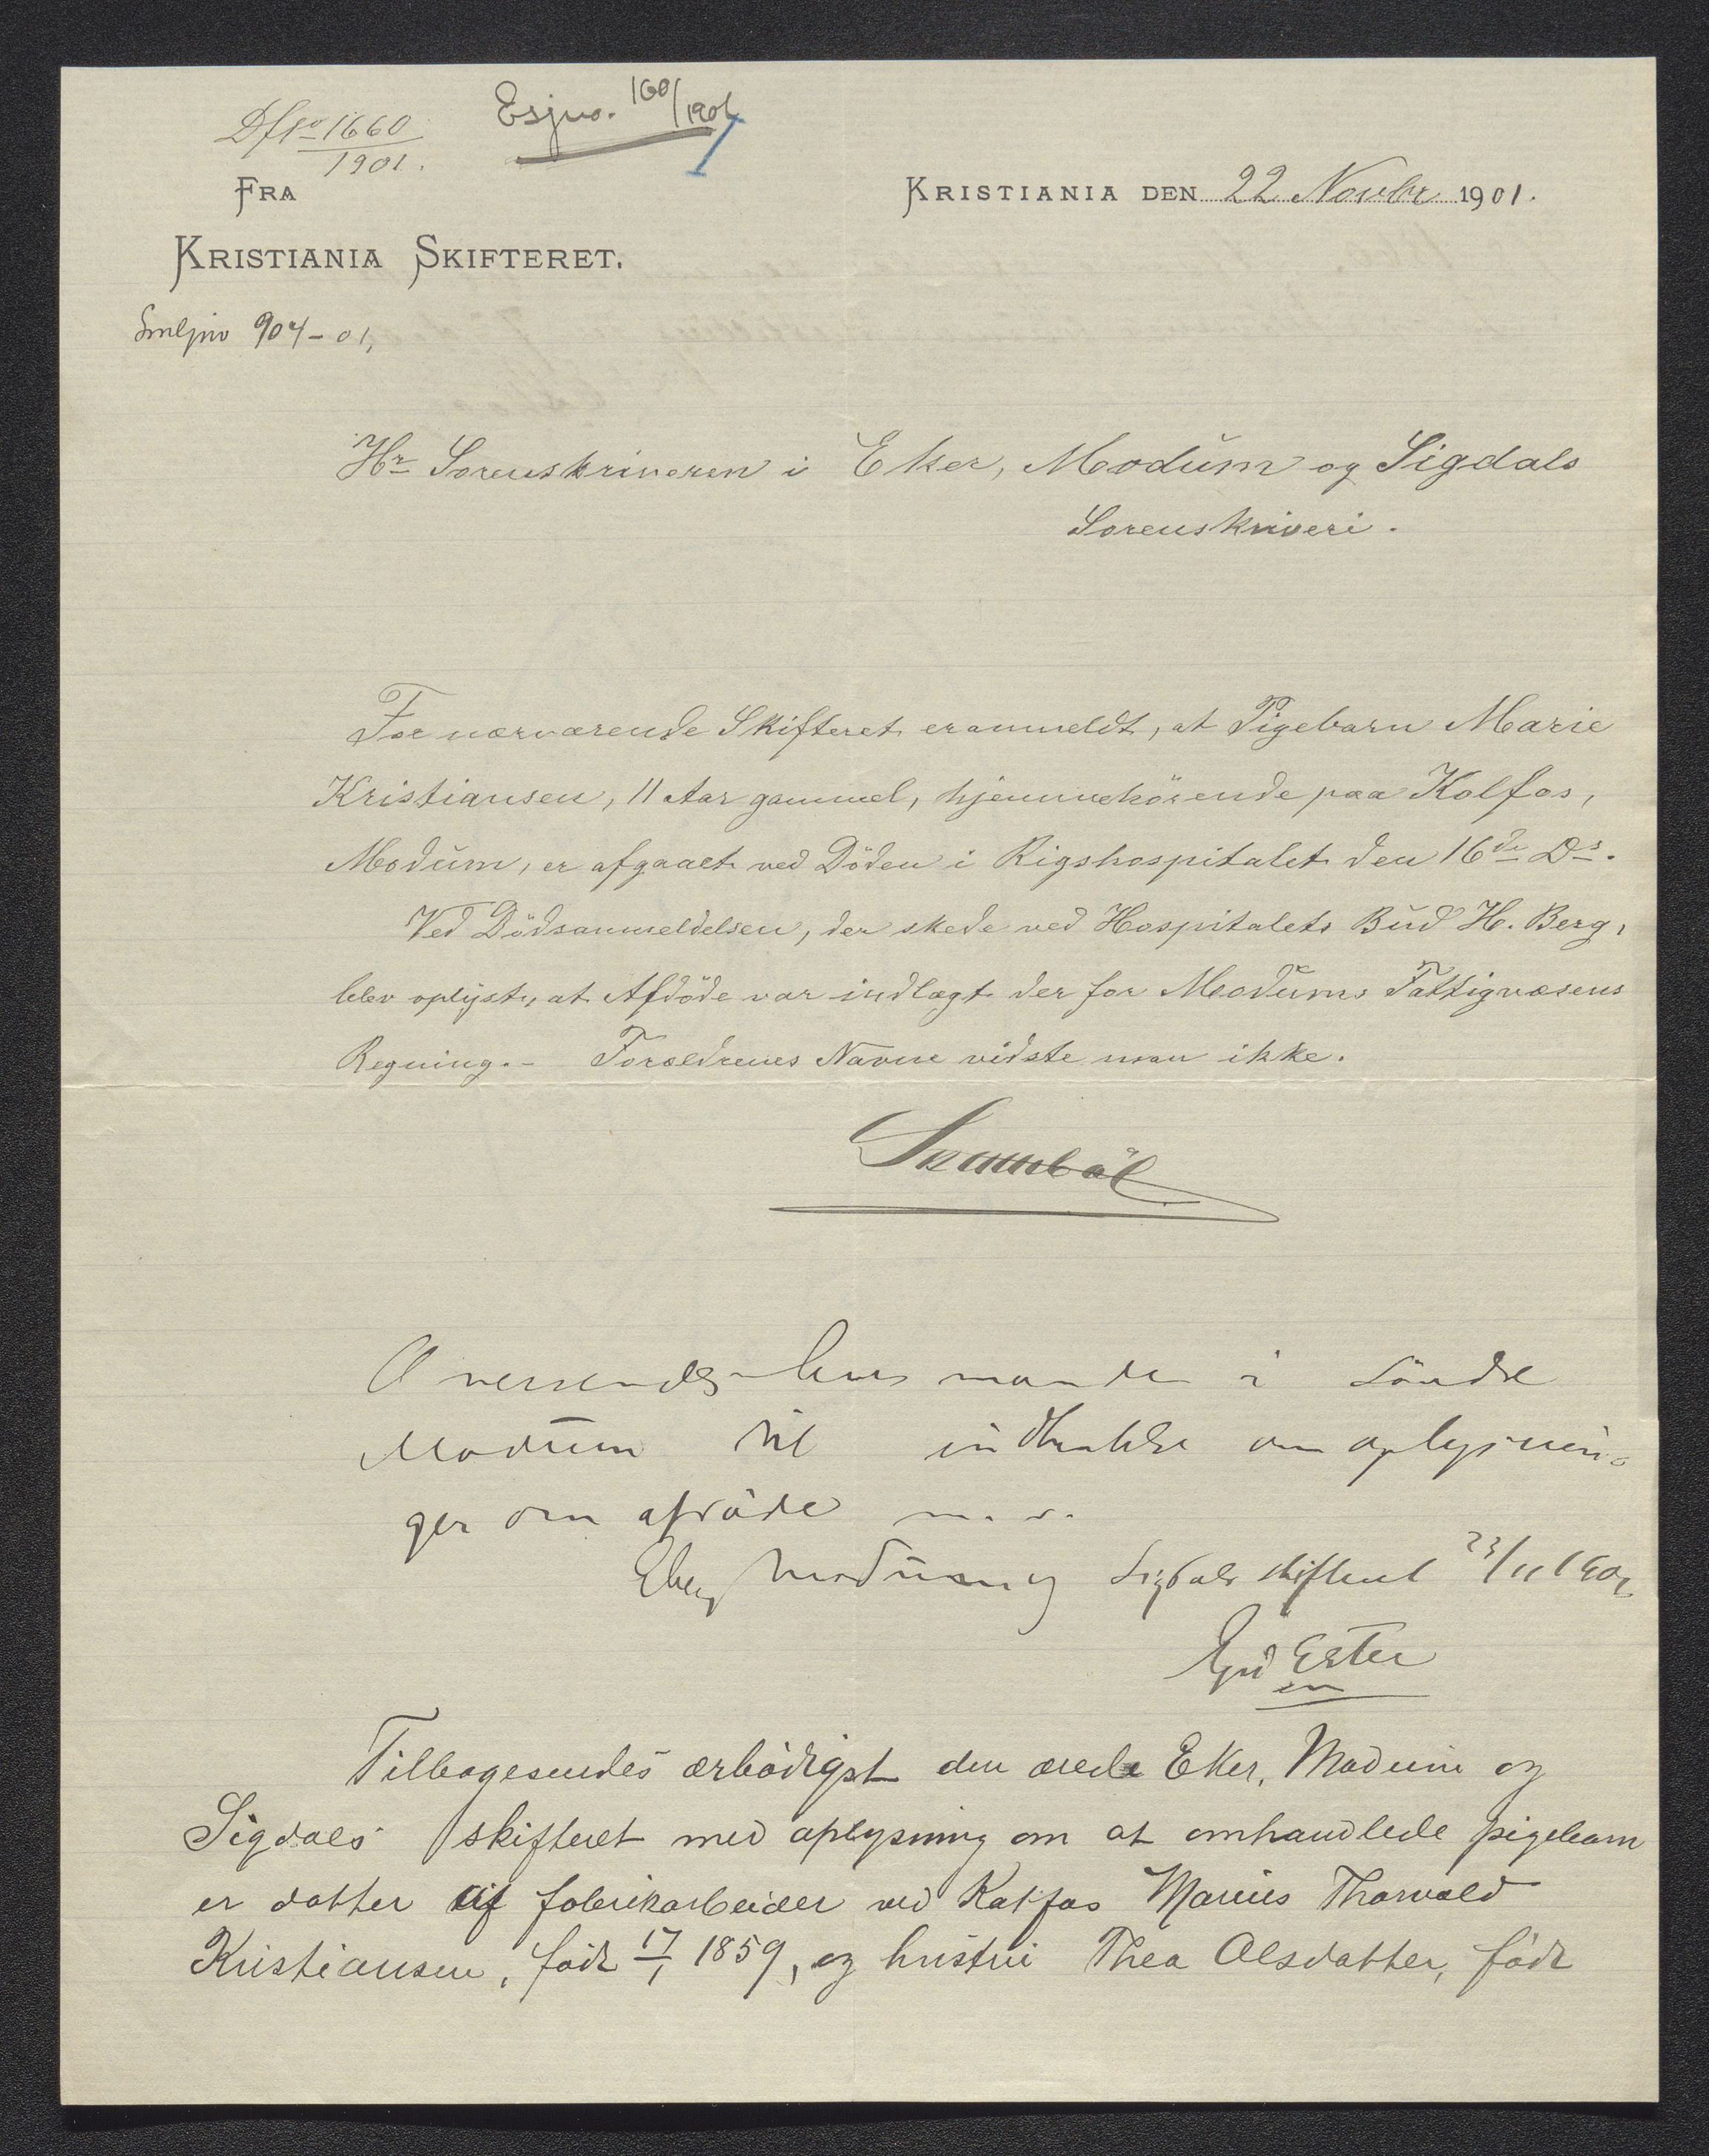 Dfno 1660
1901.
Esjno. 160/1901
FRA
KRISTIANIA SKIFTERET.
KRISTIANIA DEN 22 Novbr 1901.
904-01,
Hr Sorenskriveren i Eker, Modum og Sigdals
Sorenskriveri.
For nærværende Skifteret er anmeldt, at Pigebarn Marie
Kristiansen, 11 Aar gammel, hjemmehörende paa Kolfos,
Modum, er afgaaet ved Döden i Rigshospitalet den 16de Ds.
Ved Dödsanmeldelsen, der skede ved Hospitalets Bud H. Berg,
blev oplyst, at Afdöde var indlagt der for Modums Fattigvæsens
Regning. - Forældrenes Navne vidste man ikke.
Oversendes lensmanden i söndre
Modum til indhentelse om oplysnin-
ger om afdöde m. v.
Eker, Modum og Sigdals skifteret 23/11 1901
Tilbagesendes ærbödigst den ærede Eker, Modum og
Sigdals skifteret med oplysning om at omhandlede pigebarn
er datter af fabrikarbeider ved Katfos Marius Thorvald
Kristiansen, födt 17/1 1859, og hustru Thea Olsdatter, födt